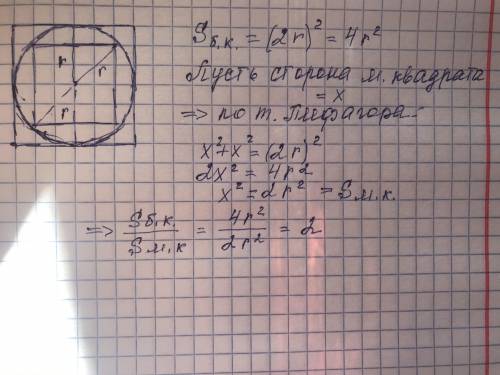 r r
r
Sб.к. = (2r)² = 4r²
Пусть сторона м. квадрата
= x
=> по т. Пифагора:
x²+x² = (2r)²
2x² = 4r²
x² = 2r² = Sм.к.
=> Sб.к. / Sм.к = 4r² / 2r² = 2